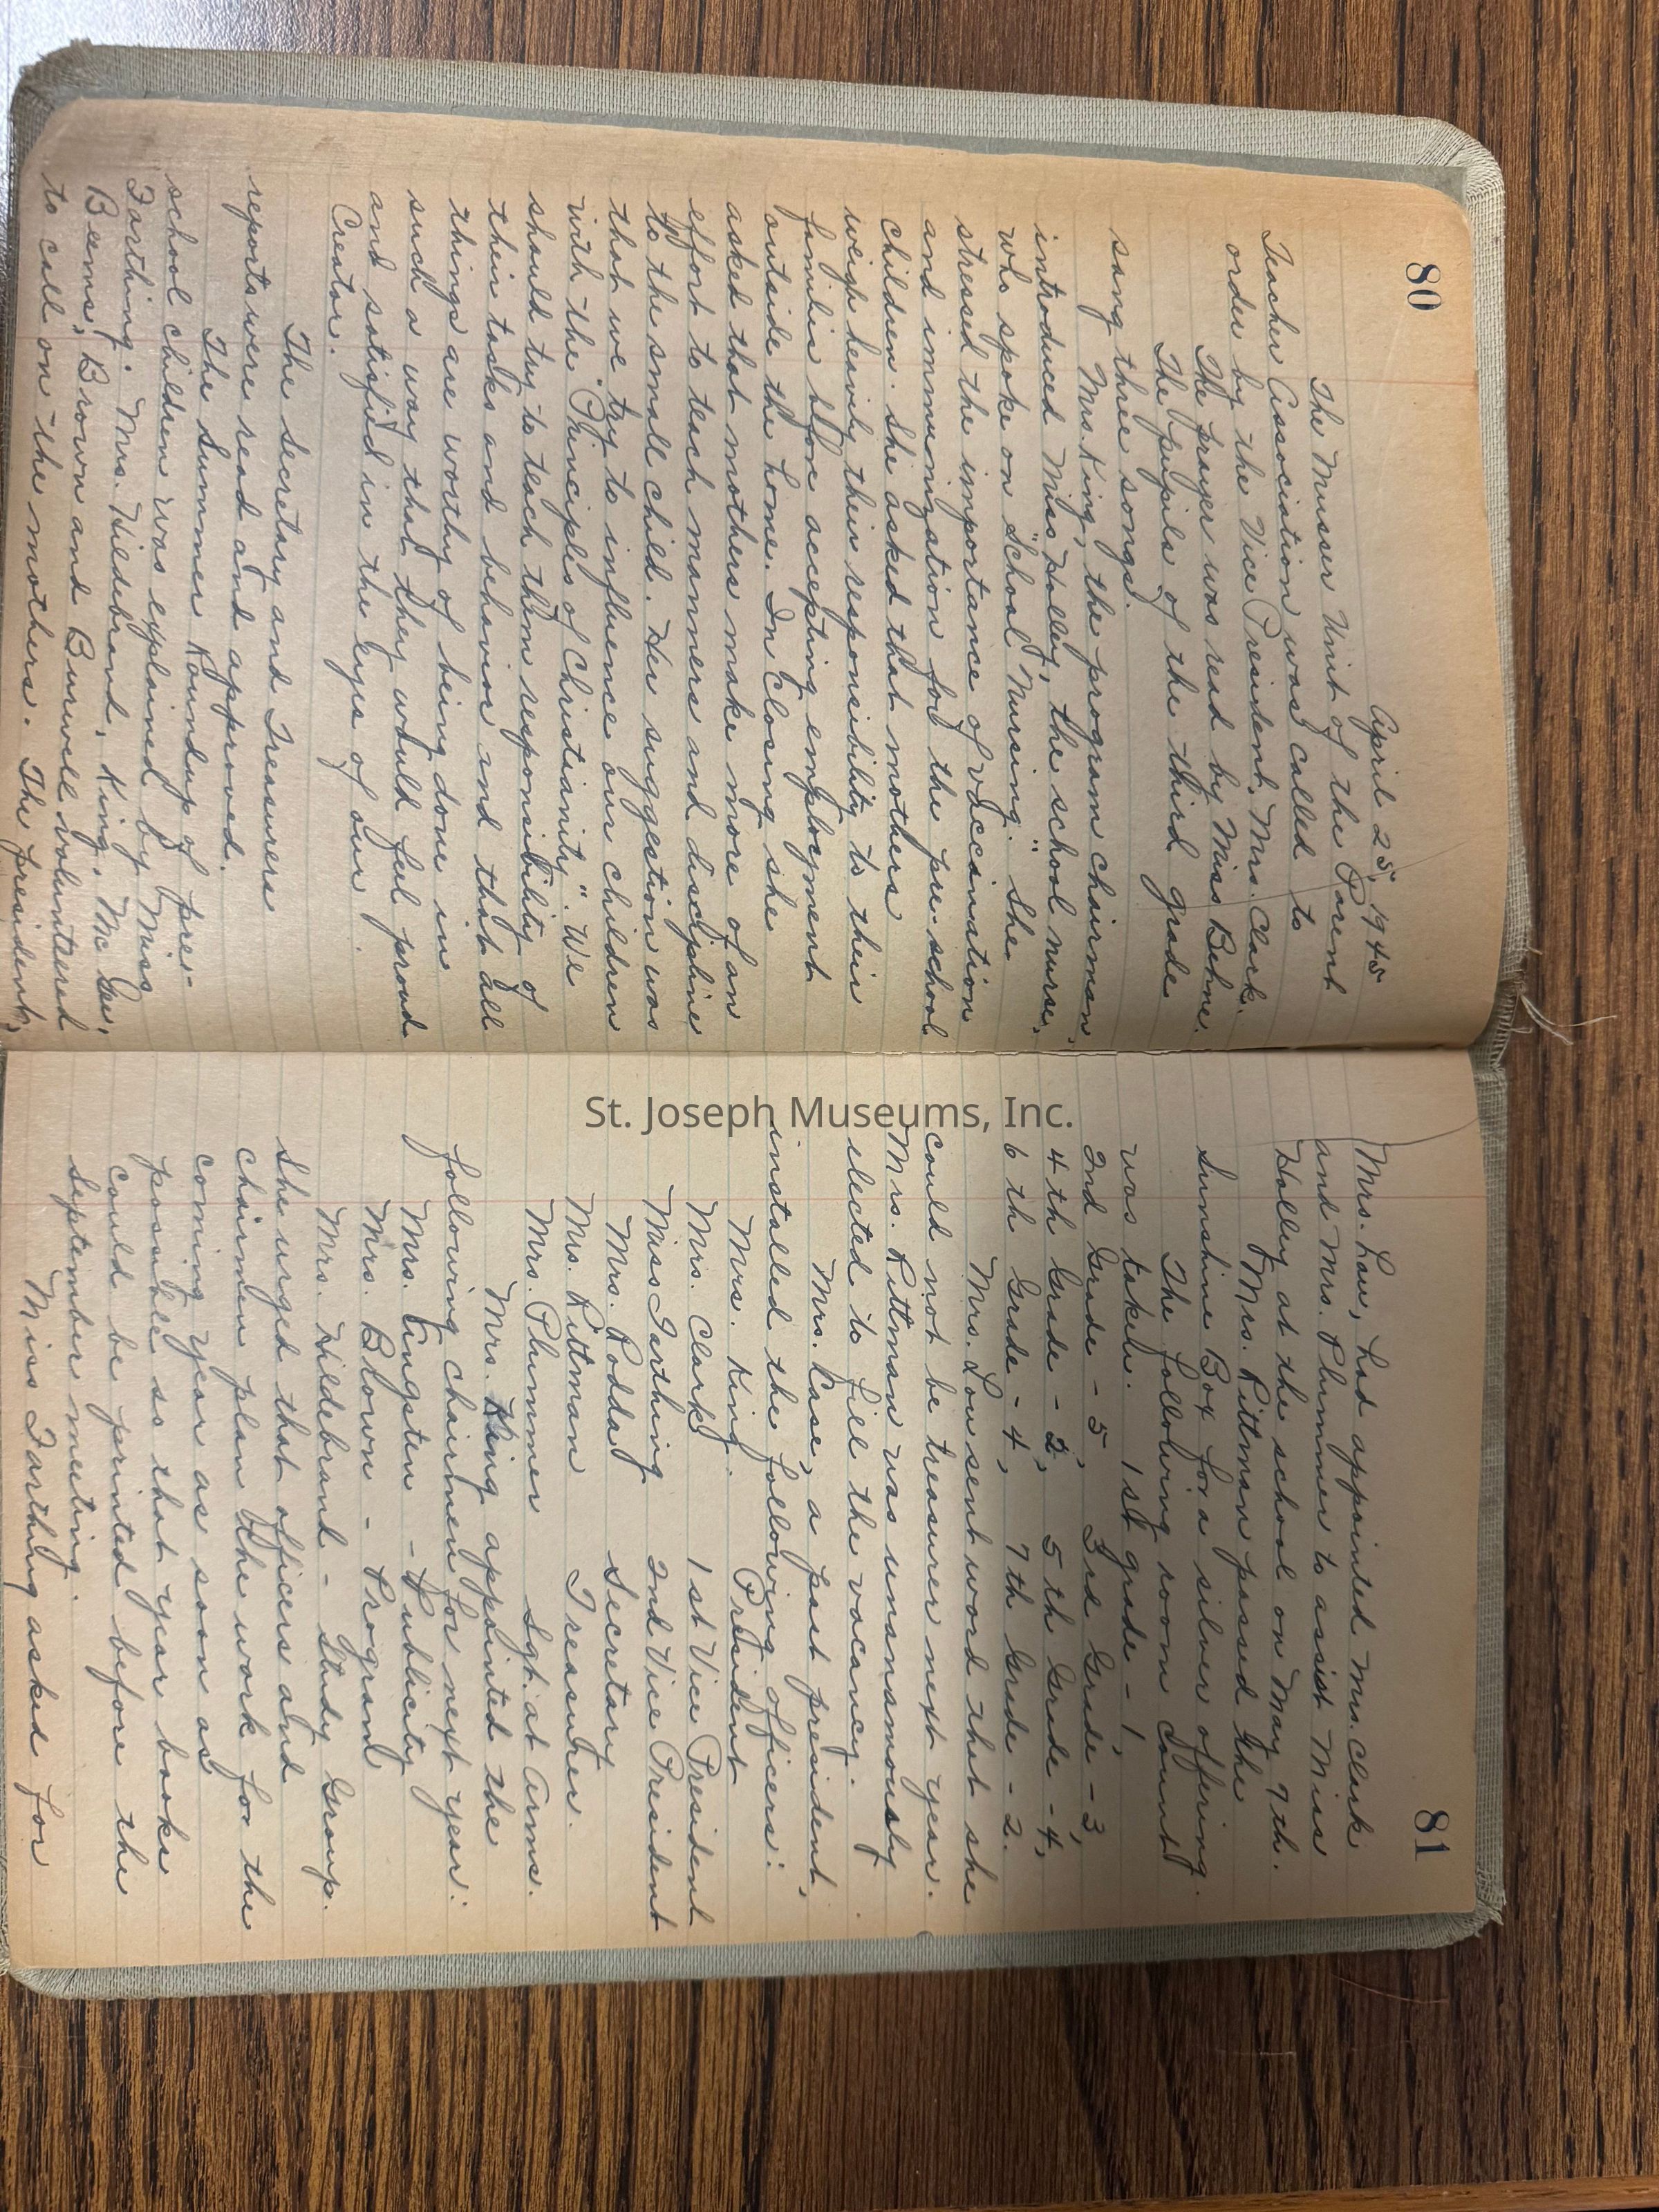 80
April 25, 1945
The Musser Unit of the Parent
Teacher Association was called to
order by the Vice President, Mrs. Clark.
The prayer was read by Miss Behne.
The pupils of the third grade
sang three songs.
Mrs. King, the program chairman,
introduced Miss Holley, the school nurse,
who spoke on "School Nursing." She
stressed the importance of vaccination
and immunization for the pre-school
children. She asked that mothers
weigh heavily their responsibility to their
familie before accepting employment
outside the home. In closing she
asked that mothers make more of an
effort to teach manners and discipline
to the small child. Her suggestion was
that we try to influence our children
with the "Principles of Christianity". We
should try to teach them responsibility of
their tasks and behavior and that all
things are worthy of being done in
such a way that they would feel proud
and satisfied in the eyes of our
Creator.
The secretary and Treasurers
reports were read and approved.
The Summer Roundup of pre-
school children was explained by Miss
Farthing. Mrs. Hildebrand, King, Mc Gee,
Beems, Brown and Burwell volunteered
to call on the mothers. The president,
81
Mrs. Lou, had appointed Mrs. Clark
and Mrs. Plummer to assist Miss
Holley at the school on May 7th.
Mrs. Pittman passed the
Sunshine Box for a silver offering.
The following room count
was taken. 1st grade - 1,
2nd Grade - 5, 3rd Grade - 3,
4th Grade - 2, 5th Grade - 4,
6th Grade - 4, 7th Grade - 2.
Mrs. Lou sent word that she
could not be treasurer next year.
Mrs. Pittman was unanamously
elected to fill the vacancy.
Mrs. Case, a past president,
installed the following officers:
Mrs. King President
Mrs. Clark 1st Vice President
Miss Farthing 2nd Vice President
Mrs. Podda Secretary
Mrs. Pittman Treasurer.
Mrs. Plummer Sgh. at Arms.
Mrs. King appointed the
following chairmen for next year:
Mrs. Angsten - Publicity
Mrs. Brown - Program
Mrs. Hildebrand - Study Group.
She urged that officers and
chairmen plan the work for the
coming year as soon as
possible so that year books
could be printed before the
September meeting.
Miss Farthing asked for
St. Joseph Museums, Inc.